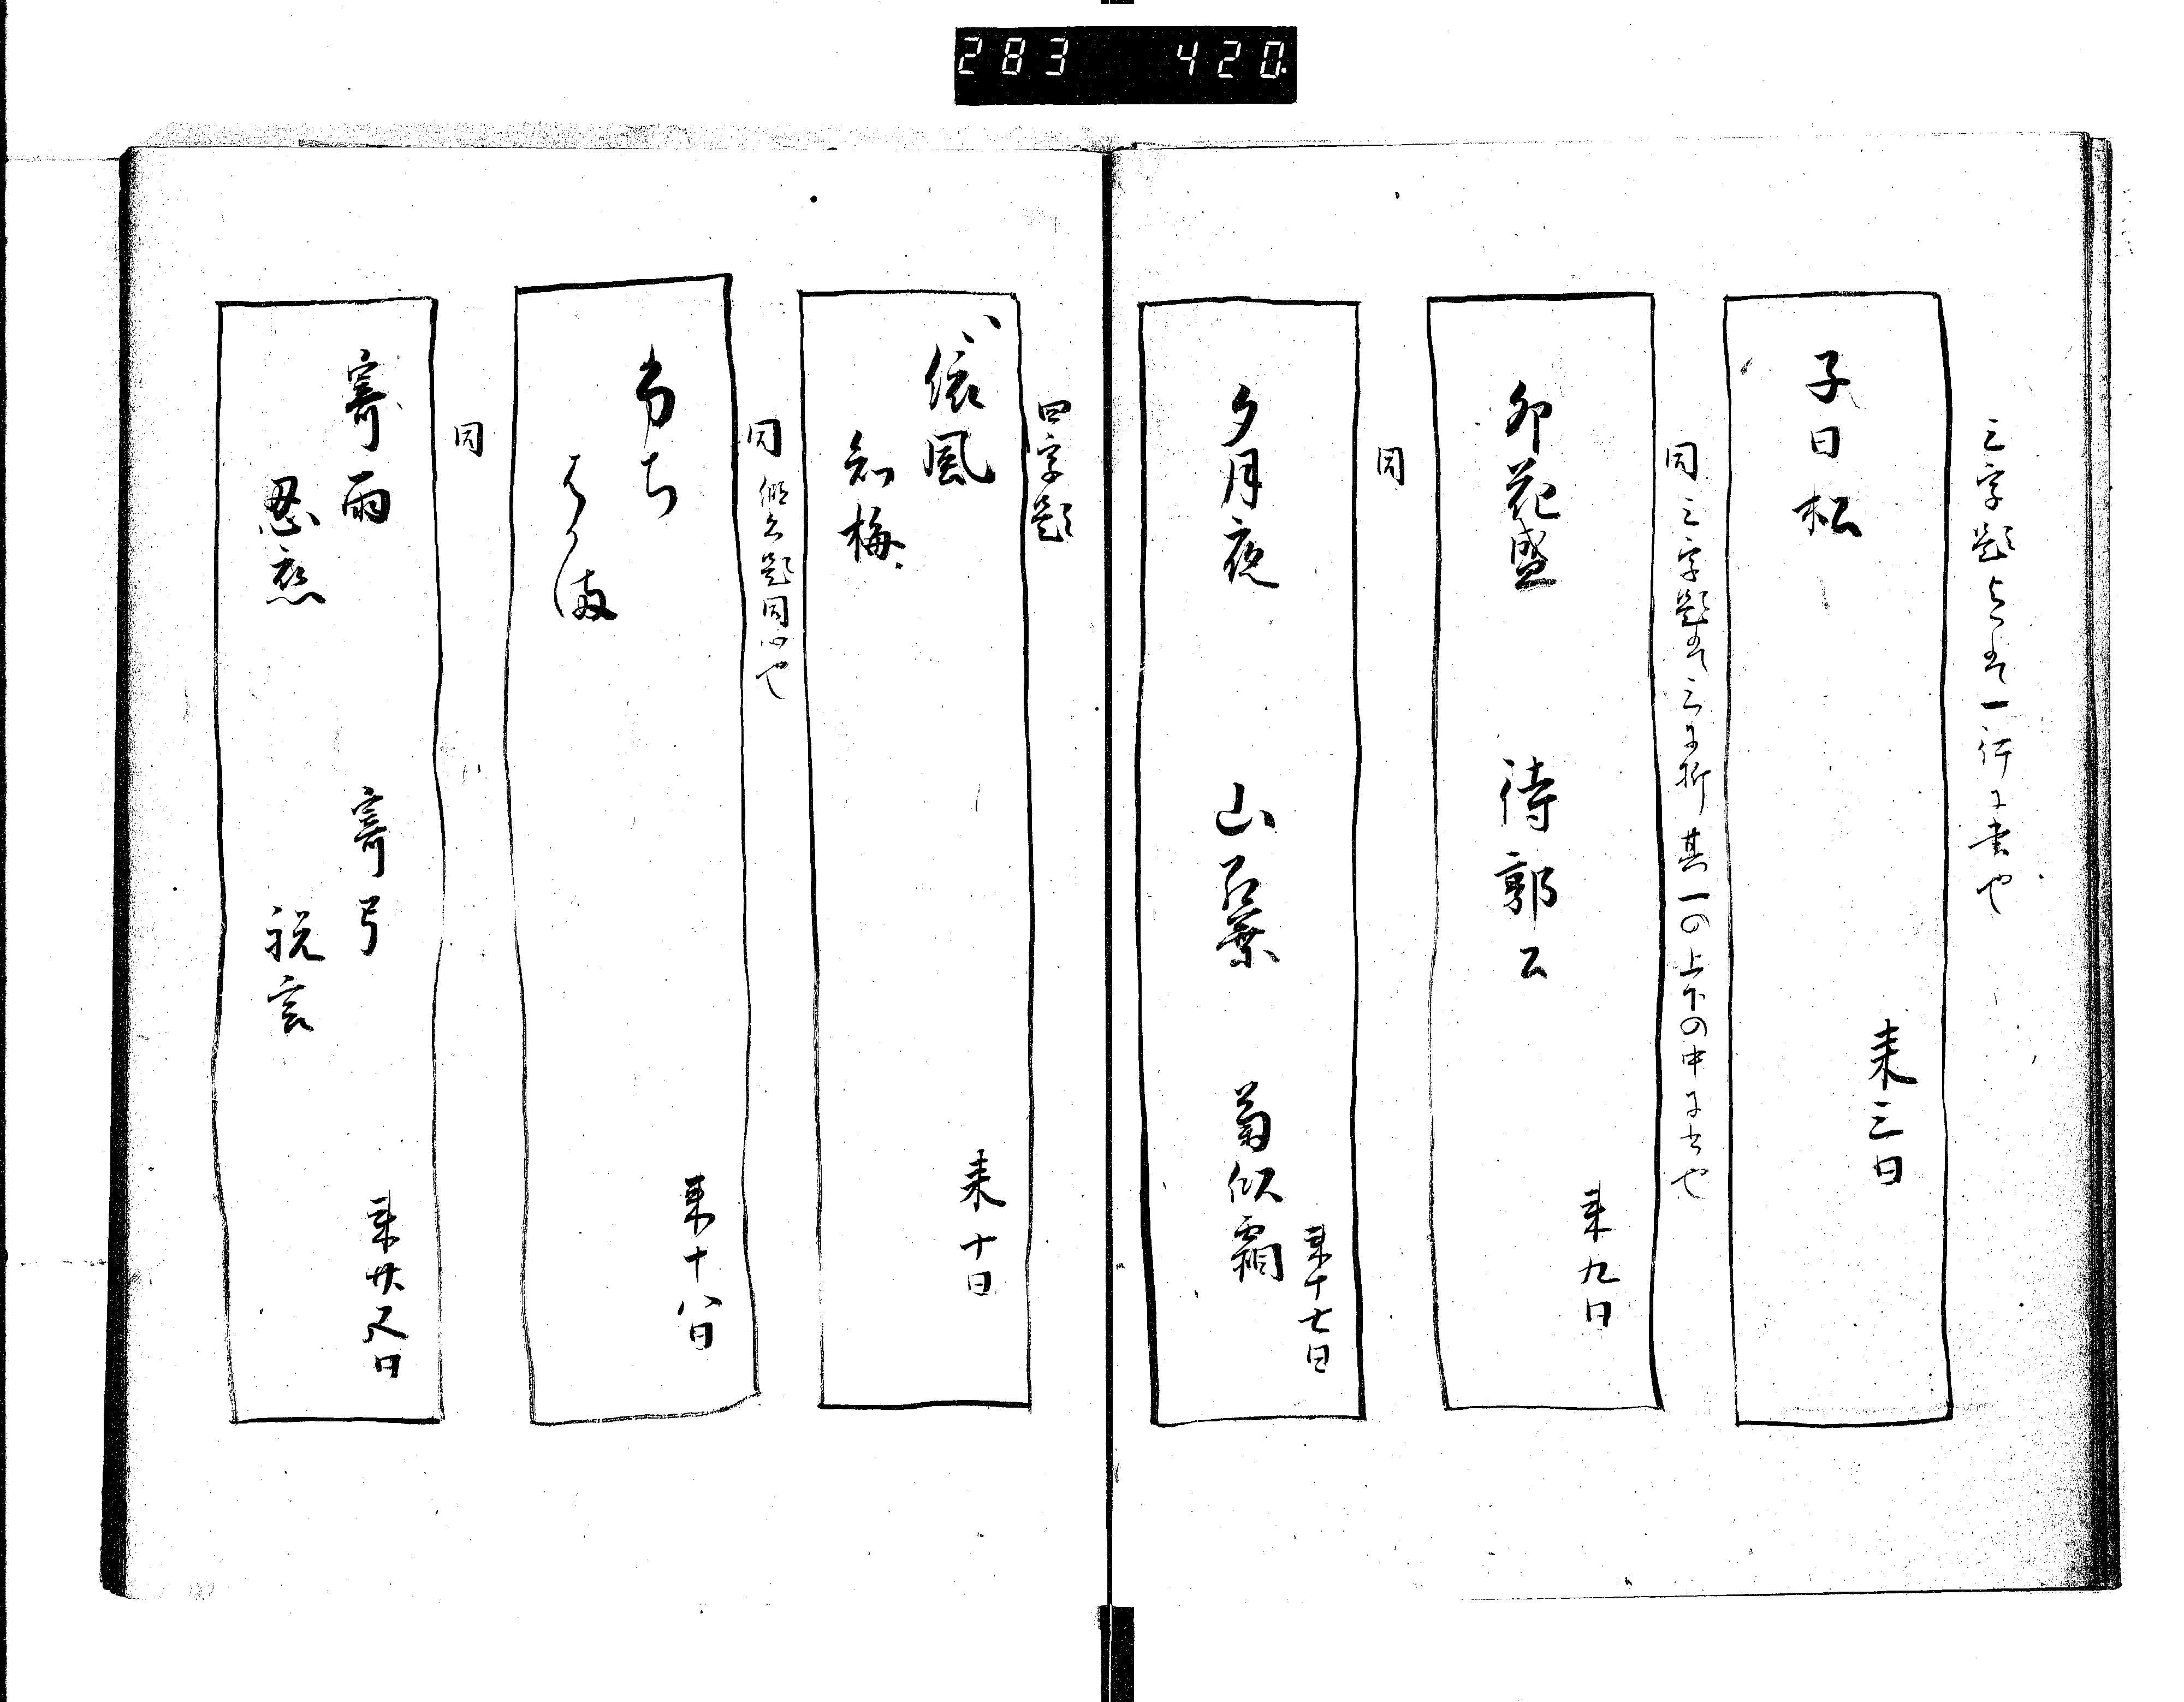 283 420
三字題
一行に書也
子日松
来三日
同 三字題
三に折 其一の上下の中に
卯花盛 待郭公
来九日
同
夕月夜 山紅葉 菊似霜
来十七日
四字題
依風
知梅
来十日
同
題同心也
来十八日
同
寄雨
忍恋
寄弓
祝言
来廿五日